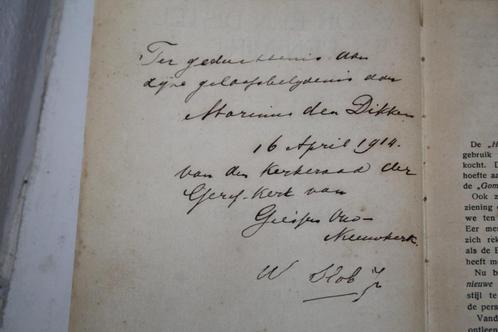 Ter gedachtenis aan
zijne geloofsbelydenis aan
Marinus den Dikken
16 April 1914.
van den Kerkeraad der
Geref. Kerk van
Giessen
Nieuwkerk.
W Slob Jz
De „H
gebruik
kocht. D
hoefte aa
de „Gom
Ook z
ziening
we ten
Eer me
zich rek
als de B
heeft m
Nu b
nieuwe
stijl te
de pers
Vand
ontleen